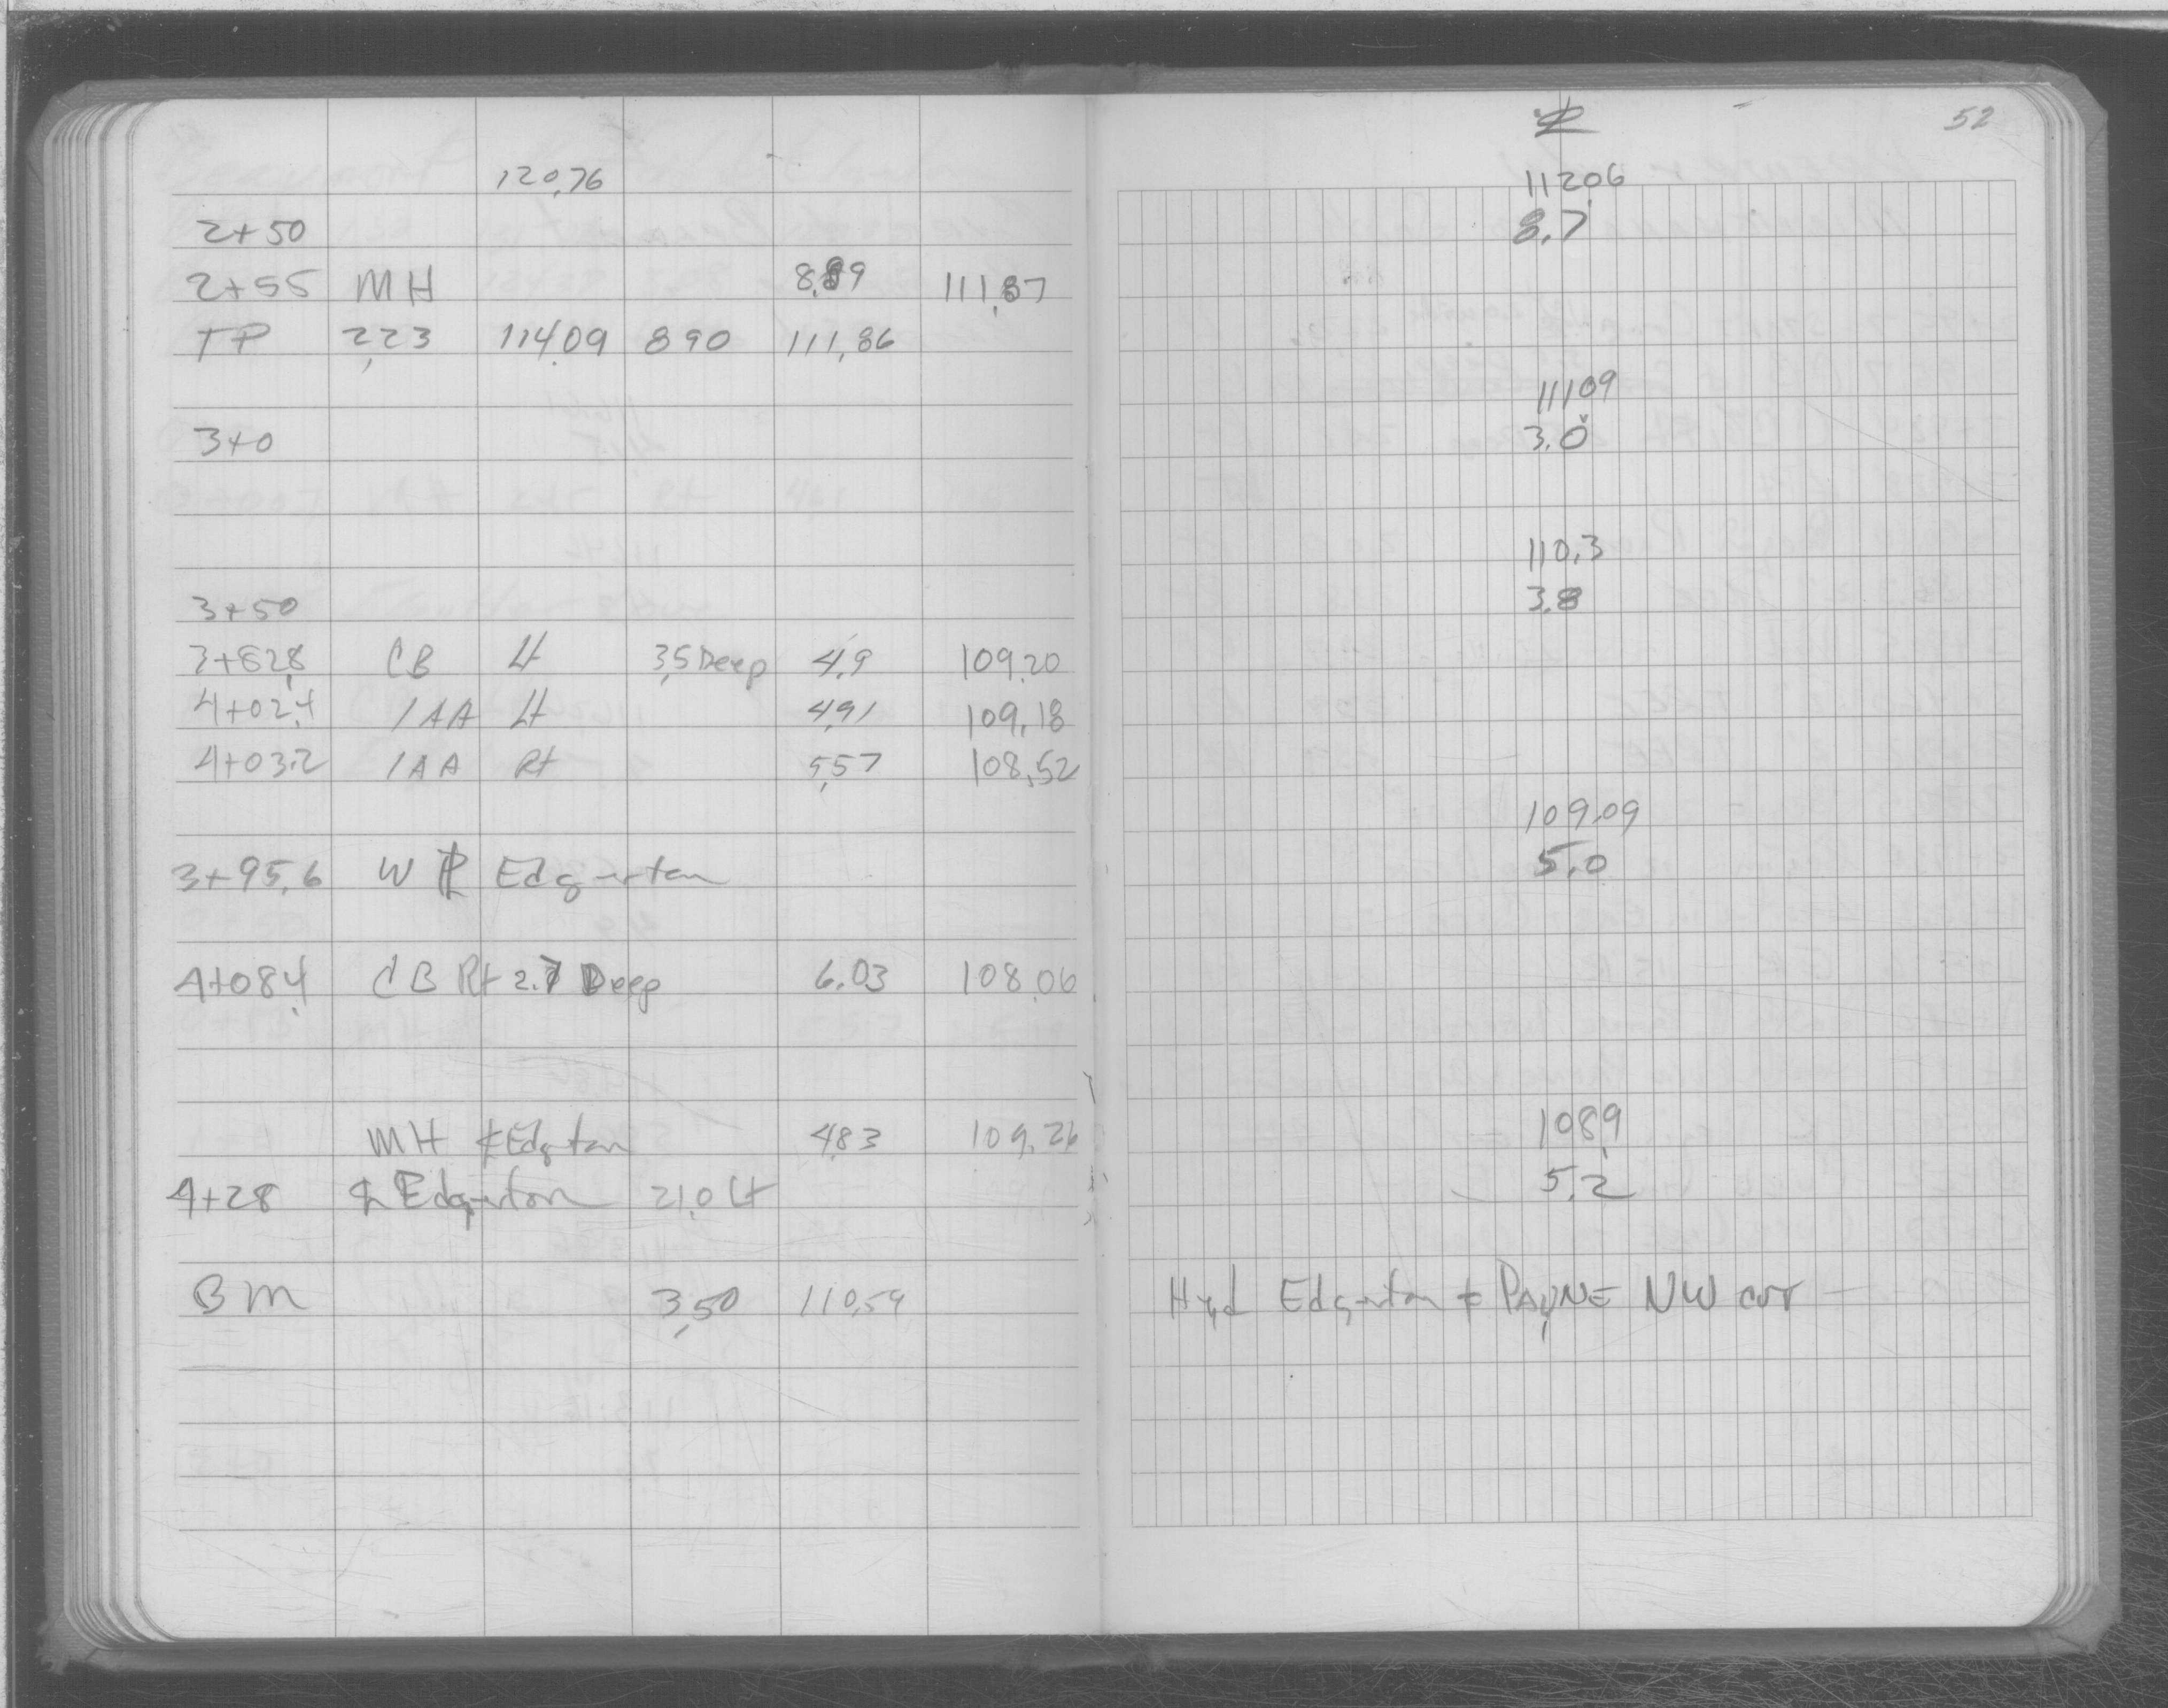 52
℄
120.76 112.06
2+50 8.7
2+55 MH 8.89 111.87
TP 2.23 114.09 8.90 111.86
111.09
3+0 3.0
110.3
3+50 3.8
3+82.8 CB Lt 3.5 Deep 4.9 109.20
4+02.4 1AA Lt 4.91 109.18
4+03.2 1AA Rt 5.57 108.52
109.09
3+95.6 W ⅊ Edgerton 5.0
4+08.4 CB Rt 2.7 Deep 6.03 108.06
MH ℄ Edgerton 4.83 109.26 108.9
4+28 ℄ Edgerton 21.0 Lt 5.2
BM 3.50 110.59 Hyd Edgerton & PAYNE NW cor